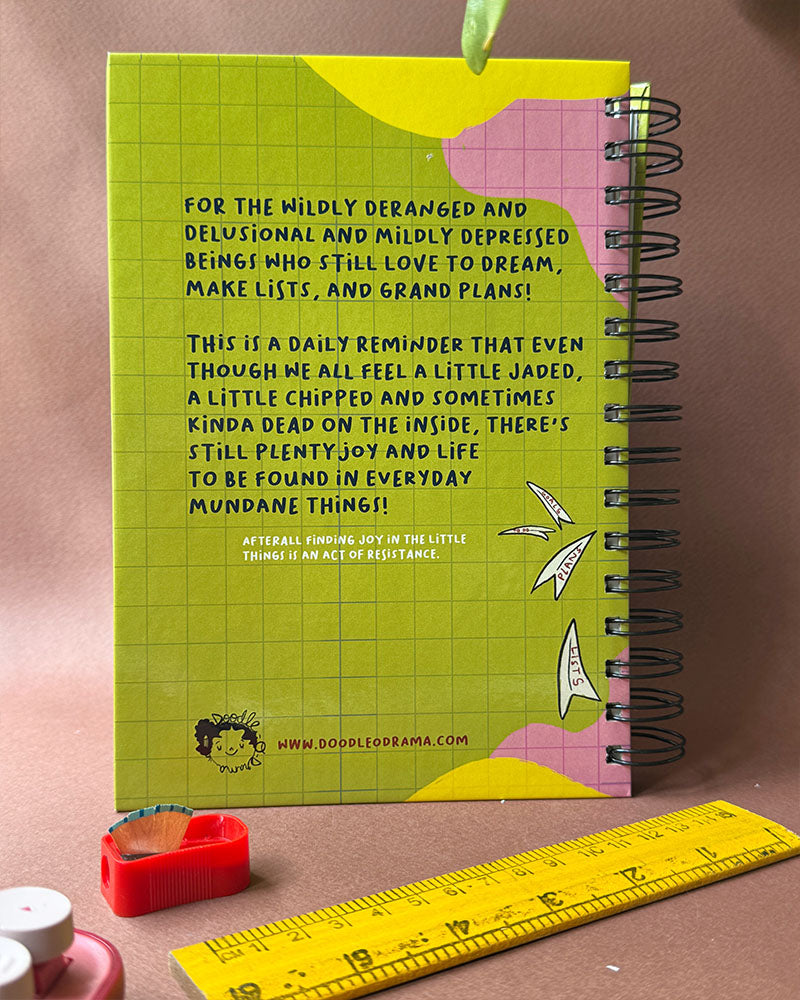 FOR THE WILDLY DERANGED AND
DELUSIONAL AND MILDLY DEPRESSED
BEINGS WHO STILL LOVE TO DREAM,
MAKE LISTS, AND GRAND PLANS!
THIS IS A DAILY REMINDER THAT EVEN
THOUGH WE ALL FEEL A LITTLE JADED,
A LITTLE CHIPPED AND SOMETIMES
KINDA DEAD ON THE INSIDE, THERE'S
STILL PLENTY JOY AND LIFE
TO BE FOUND IN EVERYDAY
MUNDANE THINGS!
AFTERALL FINDING JOY IN THE LITTLE
THINGS IS AN ACT OF RESISTANCE.
PLANS
LISTS
Doodle
O
Drama
WWW.DOODLEODRAMA.COM
CM 1 2 3 4 5 6 7 8 9 10 11 12 13
6 5 4 3 2 1